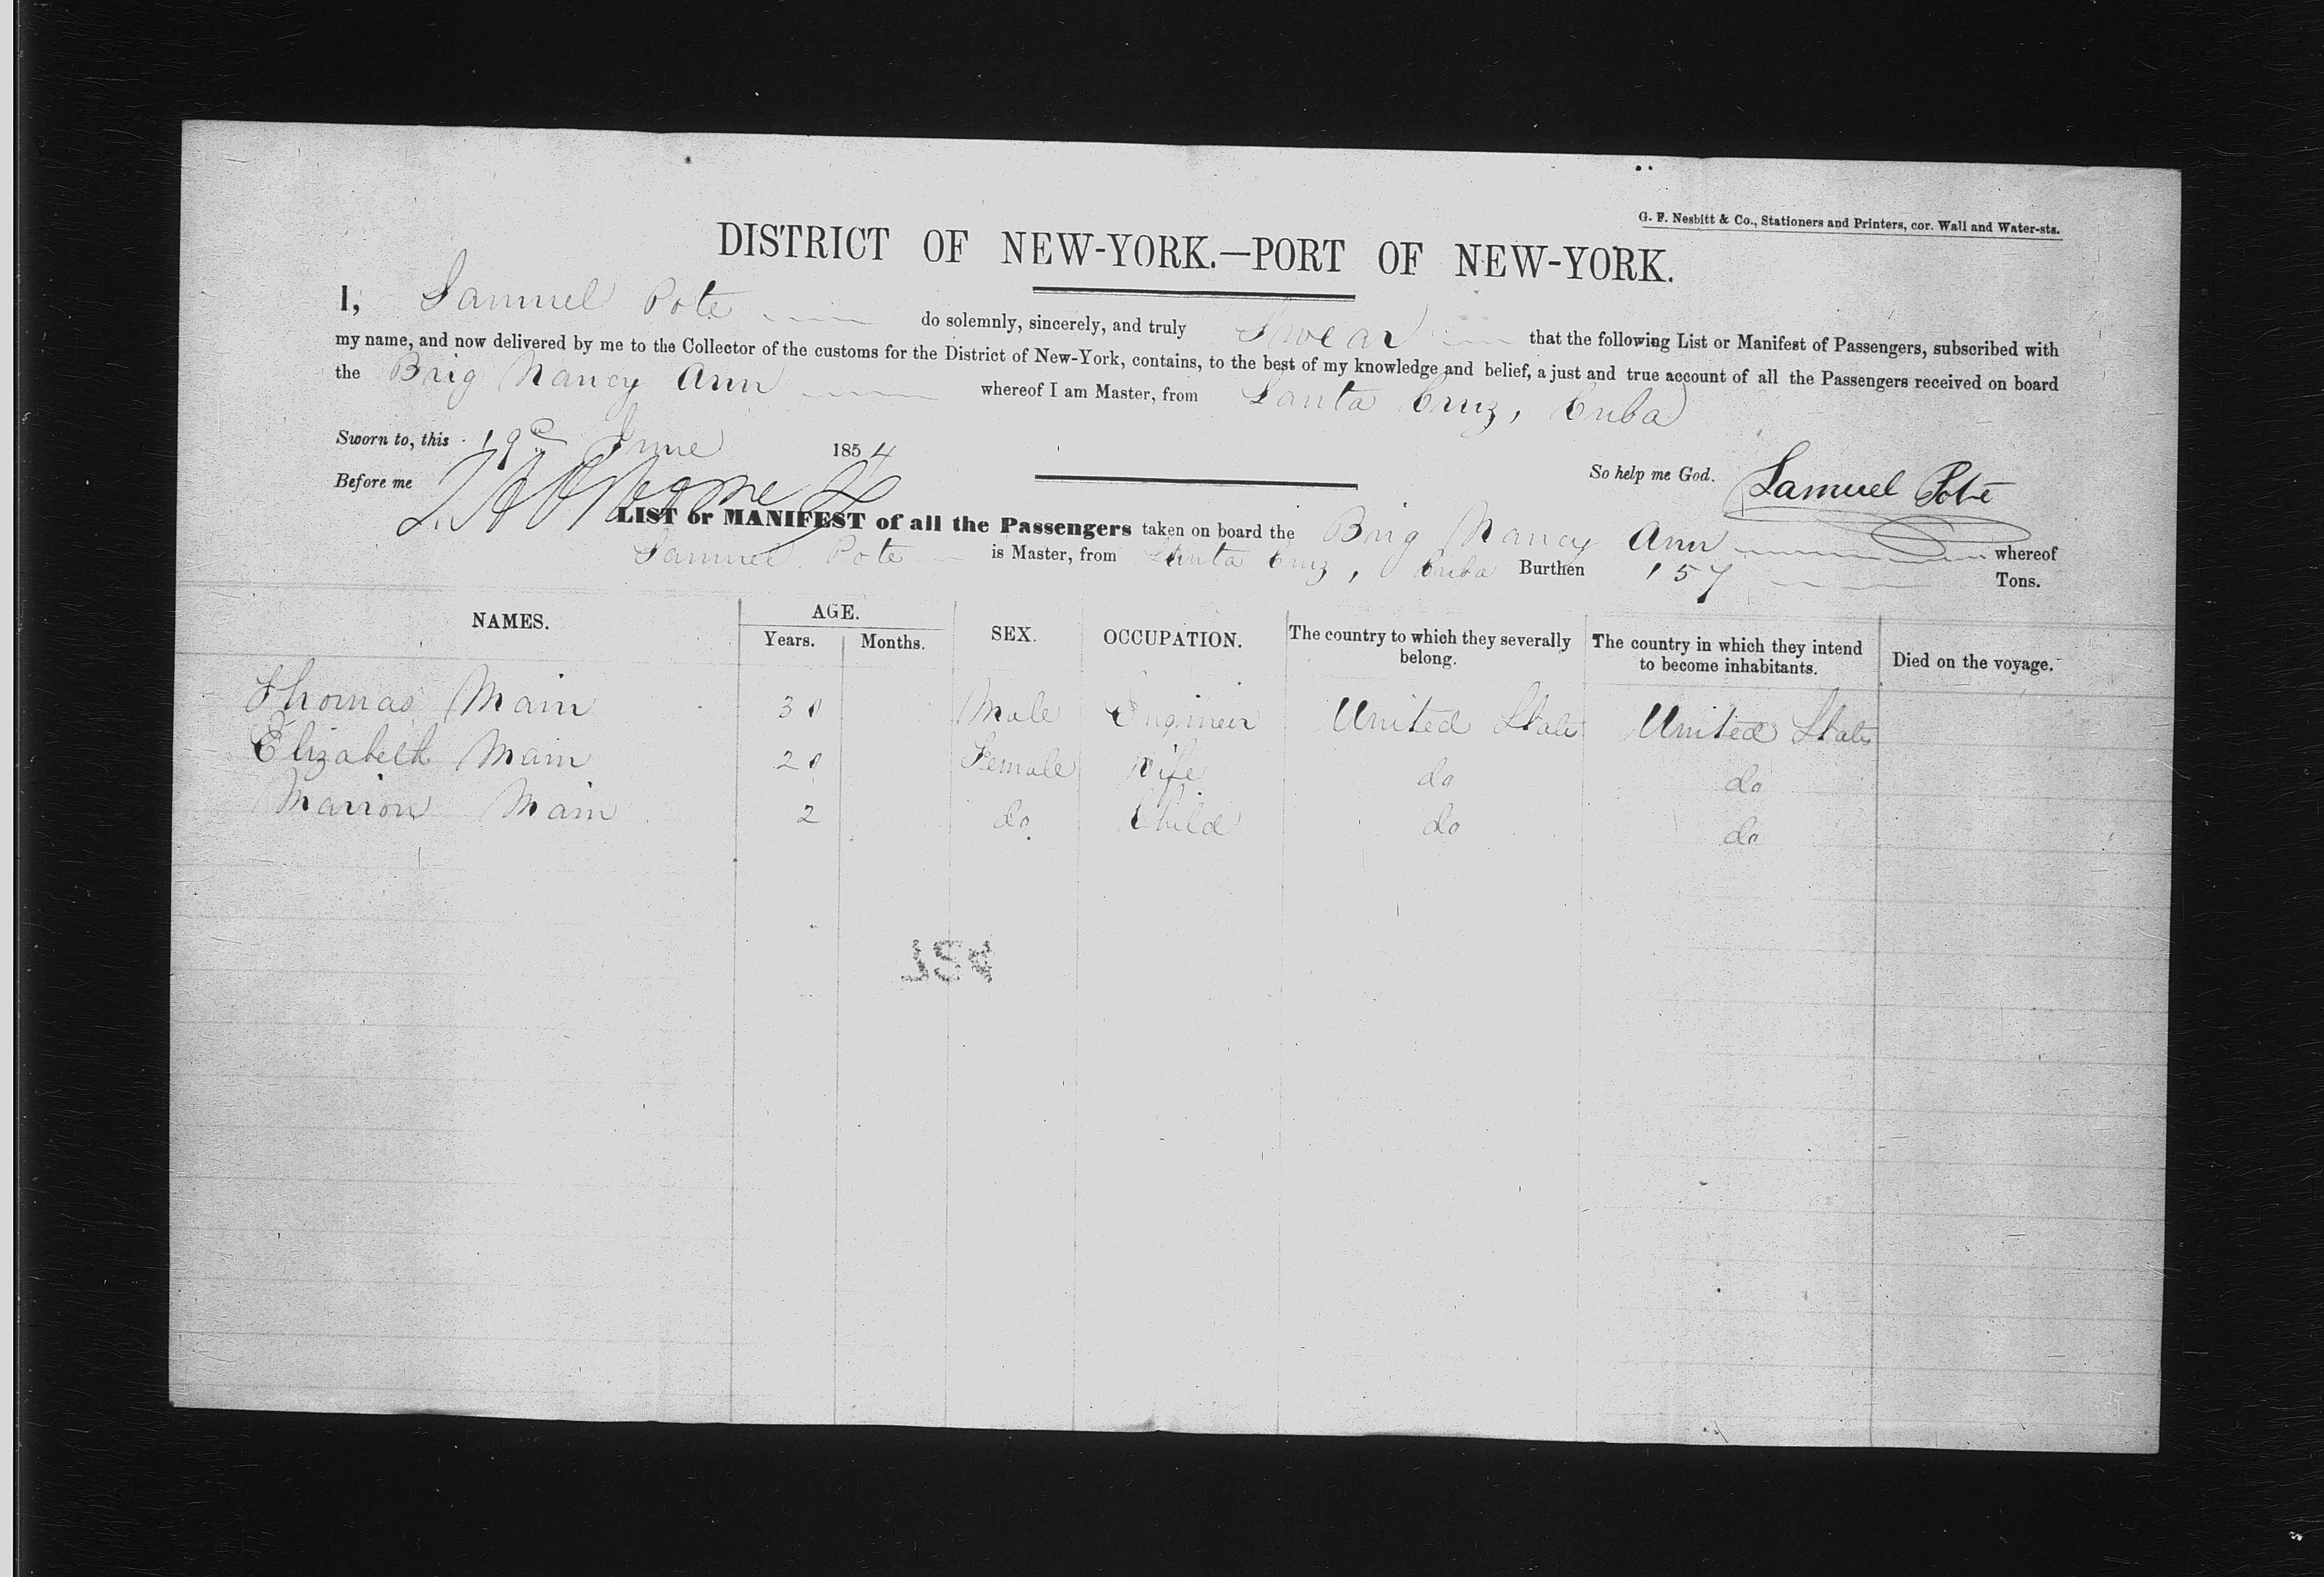 G. F. Nesbitt & Co., Stationers and Printers, cor. Wall and Water-sts.
DISTRICT OF NEW-YORK.—PORT OF NEW-YORK.
I, Samuel Pote do solemnly, sincerely, and truly Swear that the following List or Manifest of Passengers, subscribed with
my name, and now delivered by me to the Collector of the customs for the District of New-York, contains, to the best of my knowledge and belief, a just and true account of all the Passengers received on board
the Brig Nancy Ann whereof I am Master, from Santa Cruz, Cuba
Sworn to, this 19 June 1854
So help me God. Samuel Pote
Before me
LIST or MANIFEST of all the Passengers taken on board the Brig Nancy Ann whereof
Samuel Pote is Master, from Santa Cruz, Cuba Burthen 157 Tons.
NAMES. AGE. Years. Months. SEX. OCCUPATION. The country to which they severally belong. The country in which they intend to become inhabitants. Died on the voyage.
Thomas Main 30 Male Engineer United States United States
Elizabeth Main 20 Female Wife do do
Marion Main 2 do Child do do